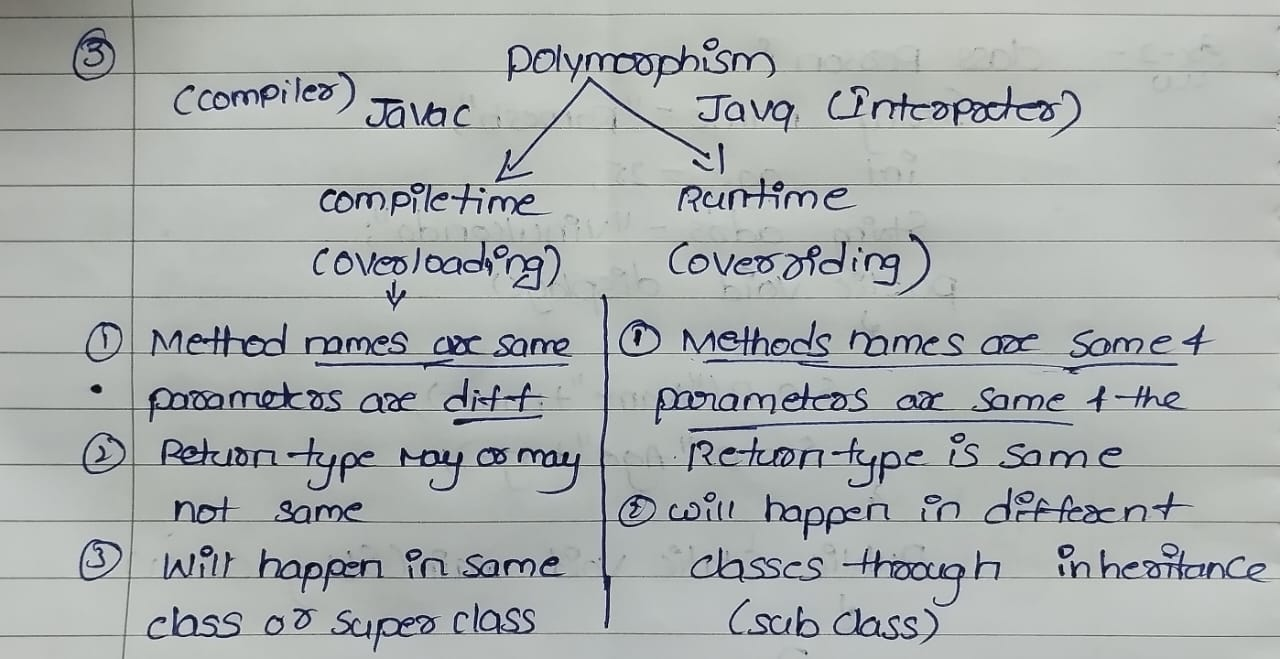 ③ polymorphism
(compiler) Javac Java (Interpreter)
compiletime Runtime
(overloading) (overriding)
① Method names are same
• parameters are diff.
② Return type may or may
not same
③ Will happen in same
class or super class
① Methods names are same &
parameters are same & the
Return type is same
② will happen in different
classes through inheritance
(sub class)